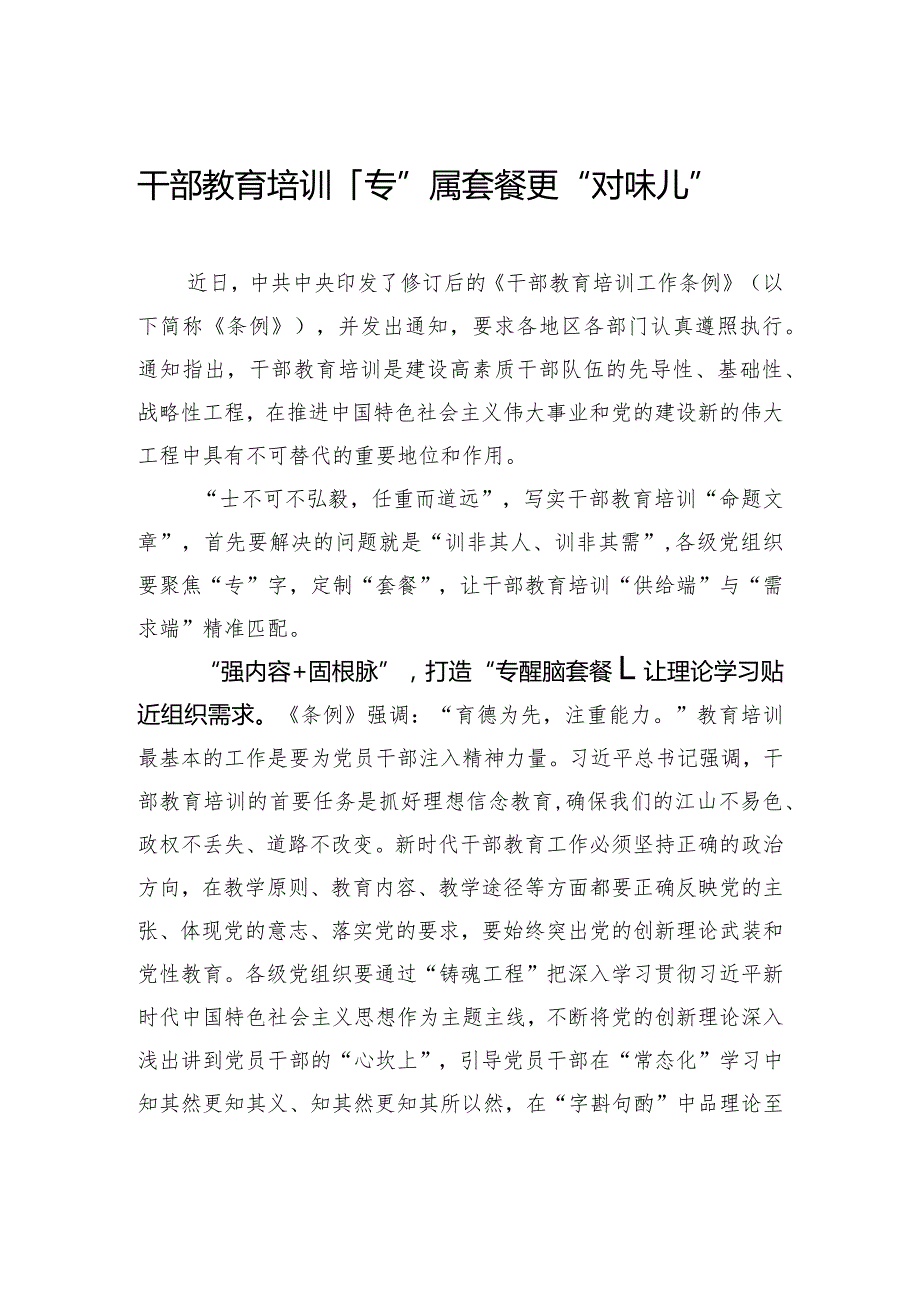 干部教育培训「专”属套餐更“对味儿”
近日，中共中央印发了修订后的《干部教育培训工作条例》（以
下简称《条例》），并发出通知，要求各地区各部门认真遵照执行。
通知指出，干部教育培训是建设高素质干部队伍的先导性、基础性、
战略性工程，在推进中国特色社会主义伟大事业和党的建设新的伟大
工程中具有不可替代的重要地位和作用。
“士不可不弘毅，任重而道远”，写实干部教育培训“命题文
章”，首先要解决的问题就是“训非其人、训非其需”,各级党组织
要聚焦“专”字，定制“套餐”，让干部教育培训“供给端”与“需
求端”精准匹配。
“强内容+固根脉”，打造“专醒脑套餐L让理论学习贴
近组织需求。《条例》强调：“育德为先，注重能力。”教育培训
最基本的工作是要为党员干部注入精神力量。习近平总书记强调，干
部教育培训的首要任务是抓好理想信念教育,确保我们的江山不易色、
政权不丢失、道路不改变。新时代干部教育工作必须坚持正确的政治
方向，在教学原则、教育内容、教学途径等方面都要正确反映党的主
张、体现党的意志、落实党的要求，要始终突出党的创新理论武装和
党性教育。各级党组织要通过“铸魂工程”把深入学习贯彻习近平新
时代中国特色社会主义思想作为主题主线，不断将党的创新理论深入
浅出讲到党员干部的“心坎上”，引导党员干部在“常态化”学习中
知其然更知其义、知其然更知其所以然，在“字斟句酌”中品理论至